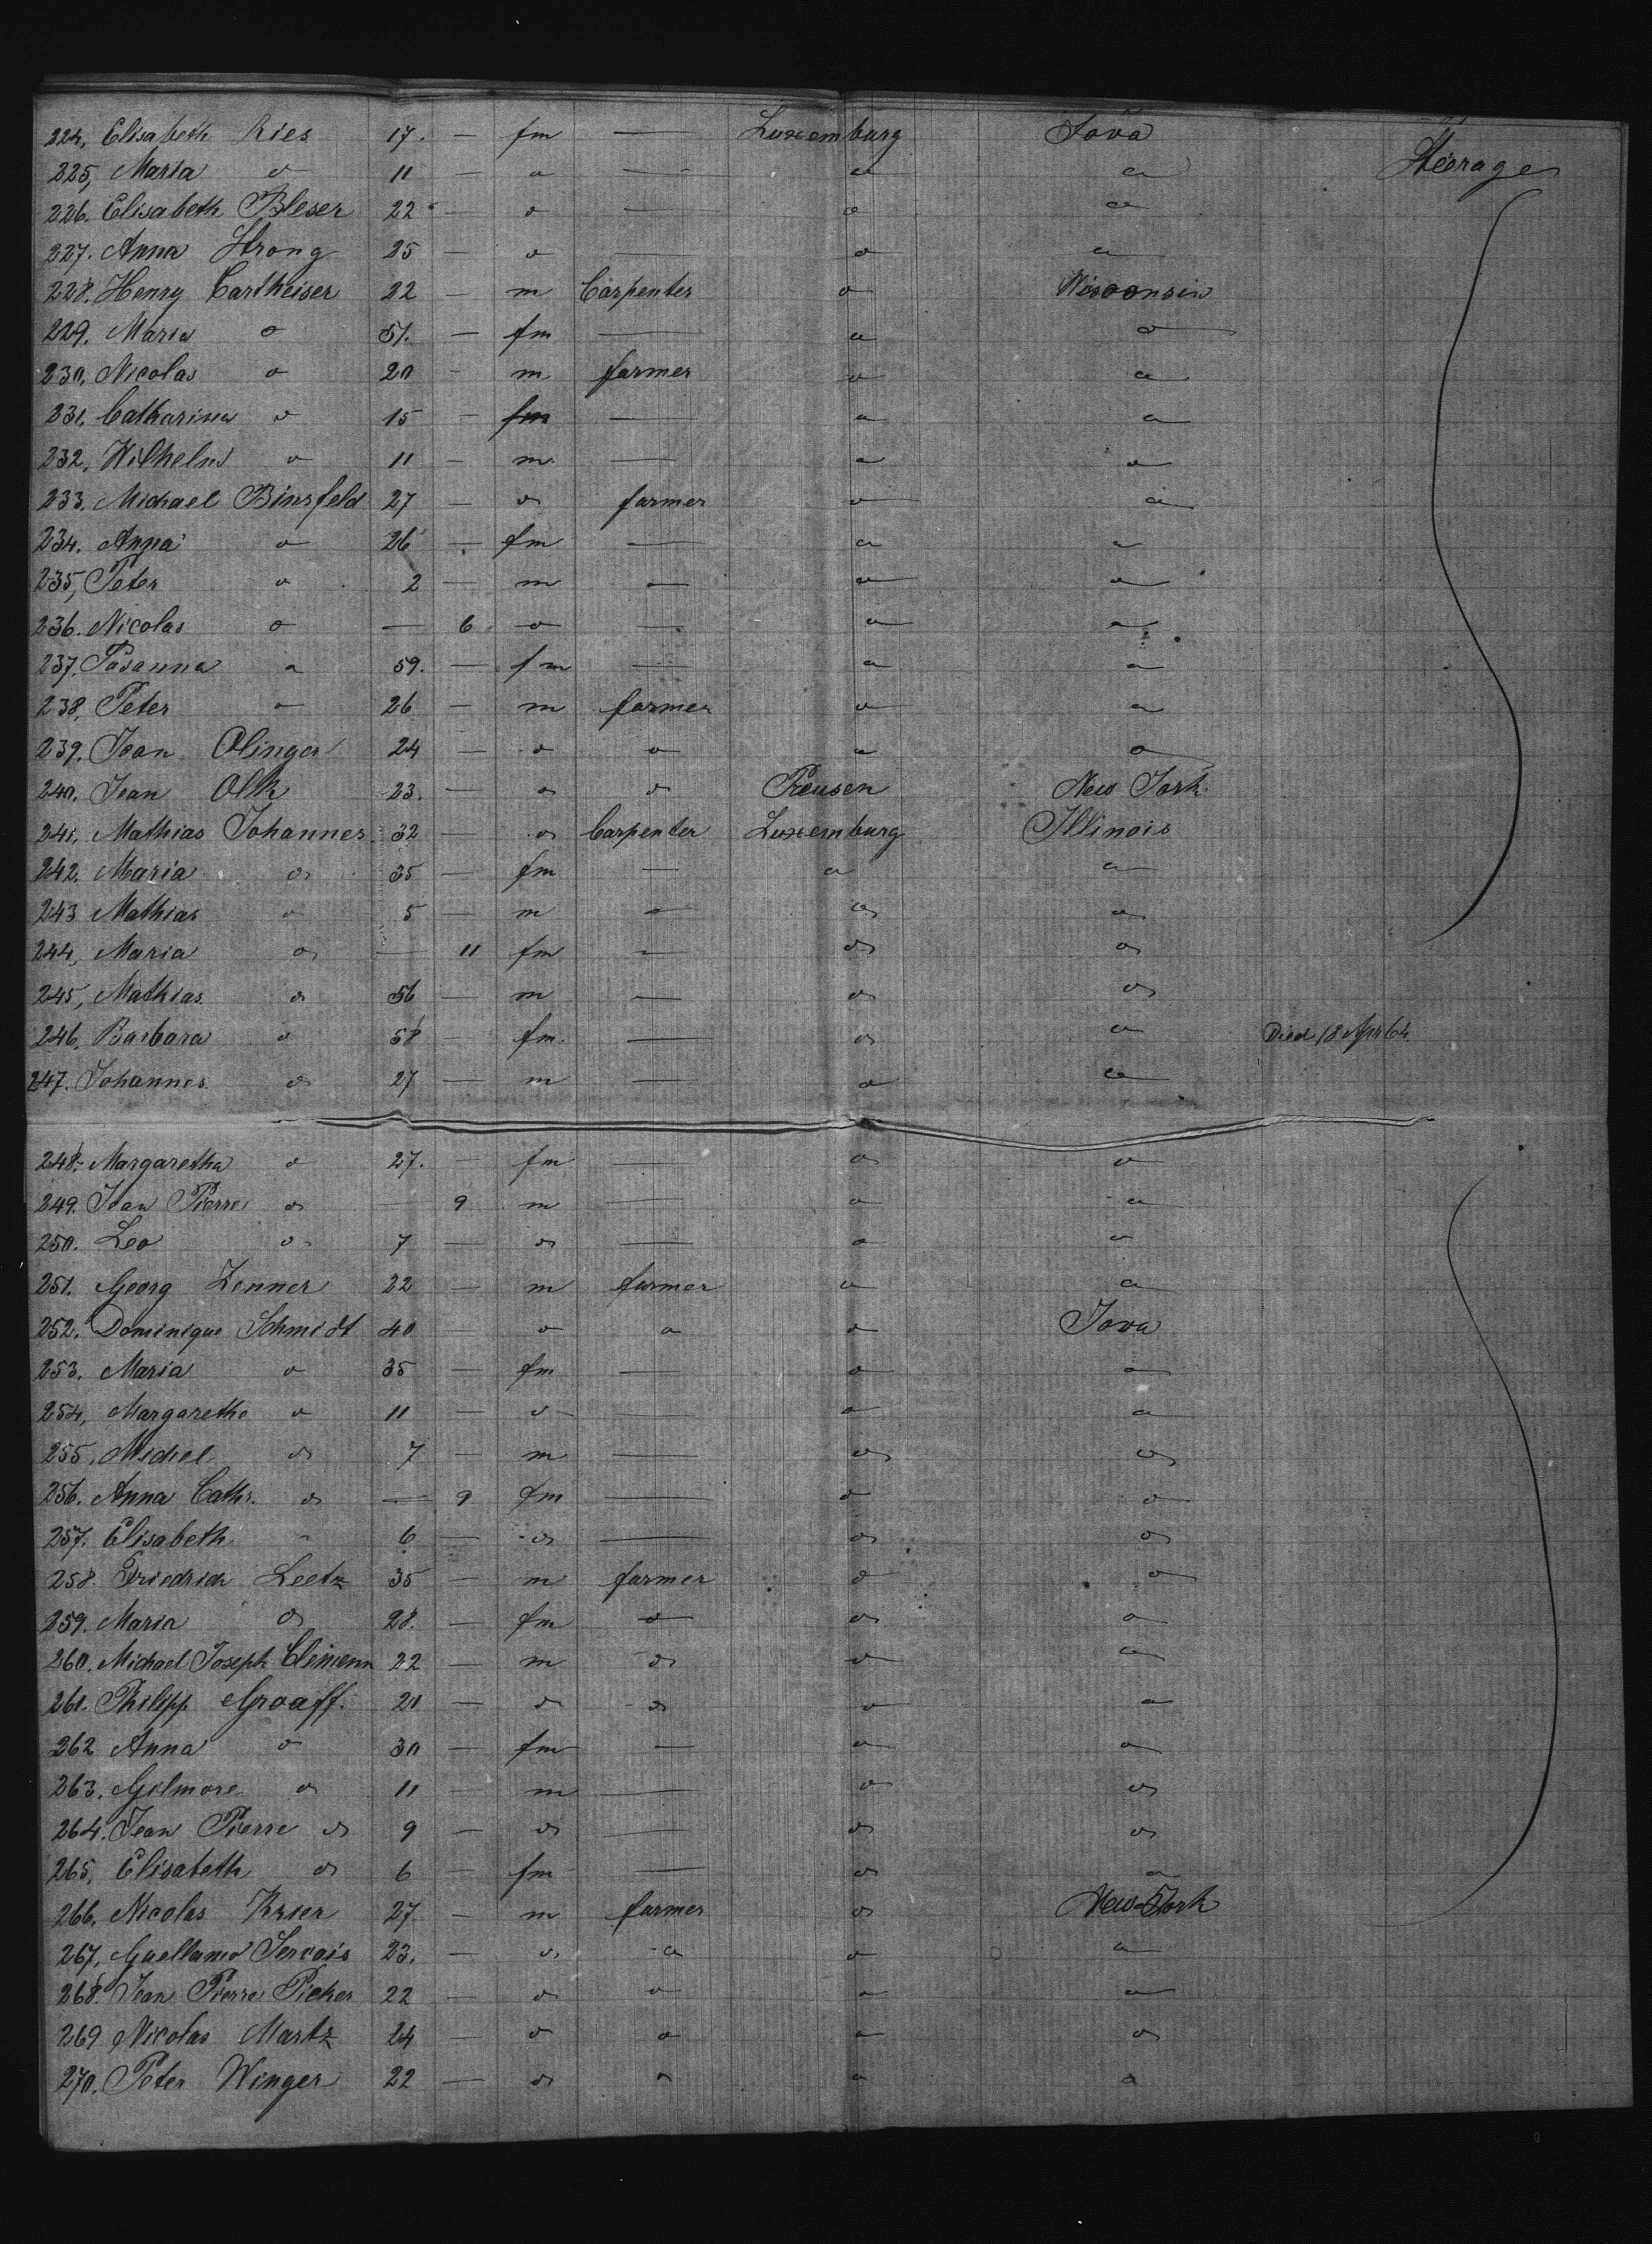 224, Elisabeth Ries 17. — fm — Luxemburg Iova
225, Maria o 11 — o — o o Steerage
226. Elisabeth Bleser 22 — o — o o
227. Anna Strong 25 — o — o o
228. Henry Cartheiser 22 — m Carpenter o Wisconsin
229. Maria o 51. — fm — o o
230. Nicolas o 20 — m farmer o o
231. Catharina o 15 — fm — o o
232, Wilhelm o 11 — m — o o
233. Michael Binsfeld 27 — o farmer o o
234. Anna o 26 — fm — o o
235, Peter o 2 — m — o o
236. Nicolas o — 6 o — o o
237. Susanna o 59. — fm — o o
238, Peter o 26 — m farmer o o
239. Jean Olinger 24 — o o o o
240. Jean Olk 23. — o o Preusen New York
241, Mathias Johannes 32 — o Carpenter Luxemburg Illinois
242. Maria o 35 — fm — o o
243 Mathias o 5 — m — o o
244, Maria o — 11 fm — o o
245, Mathias o 56 — m — o o
246, Barbara o 58 — fm — o o Died 18 Apr 64
247. Johannes o 27 — m — o o
248. Margaretha o 27. — fm — o o
249. Jean Pierre o — 9 m — o o
250. Leo o 7 — o — o o
251. Georg Zenner 22 — m farmer o o
252. Dominique Schmidt 40 — o o o Iova
253. Maria o 35 — fm — o o
254, Margarethe o 11 — o — o o
255. Michel o 7 — m — o o
256. Anna Cath. o — 9 fm — o o
257. Elisabeth o 6 — o — o o
258. Friedrich Leetz 35 — m farmer o o
259. Maria o 28. — fm o o o
260. Michael Joseph Clemenn 22 — m o o o
261. Philipp Graaff. 21 — o o o o
262 Anna o 30 — fm — o o
263. Gilmore o 11 — m — o o
264. Jean Pierre o 9 — o — o o
265, Elisabeth o 6 — fm — o o
266, Nicolas Krier 27. — m farmer o New York
267, Guellamo Servais 23. — o o o o
268. Jean Pierre Picker 22 — o o o o
269 Nicolas Martz 24 — o o o o
270. Peter Winger 22 — o o o o